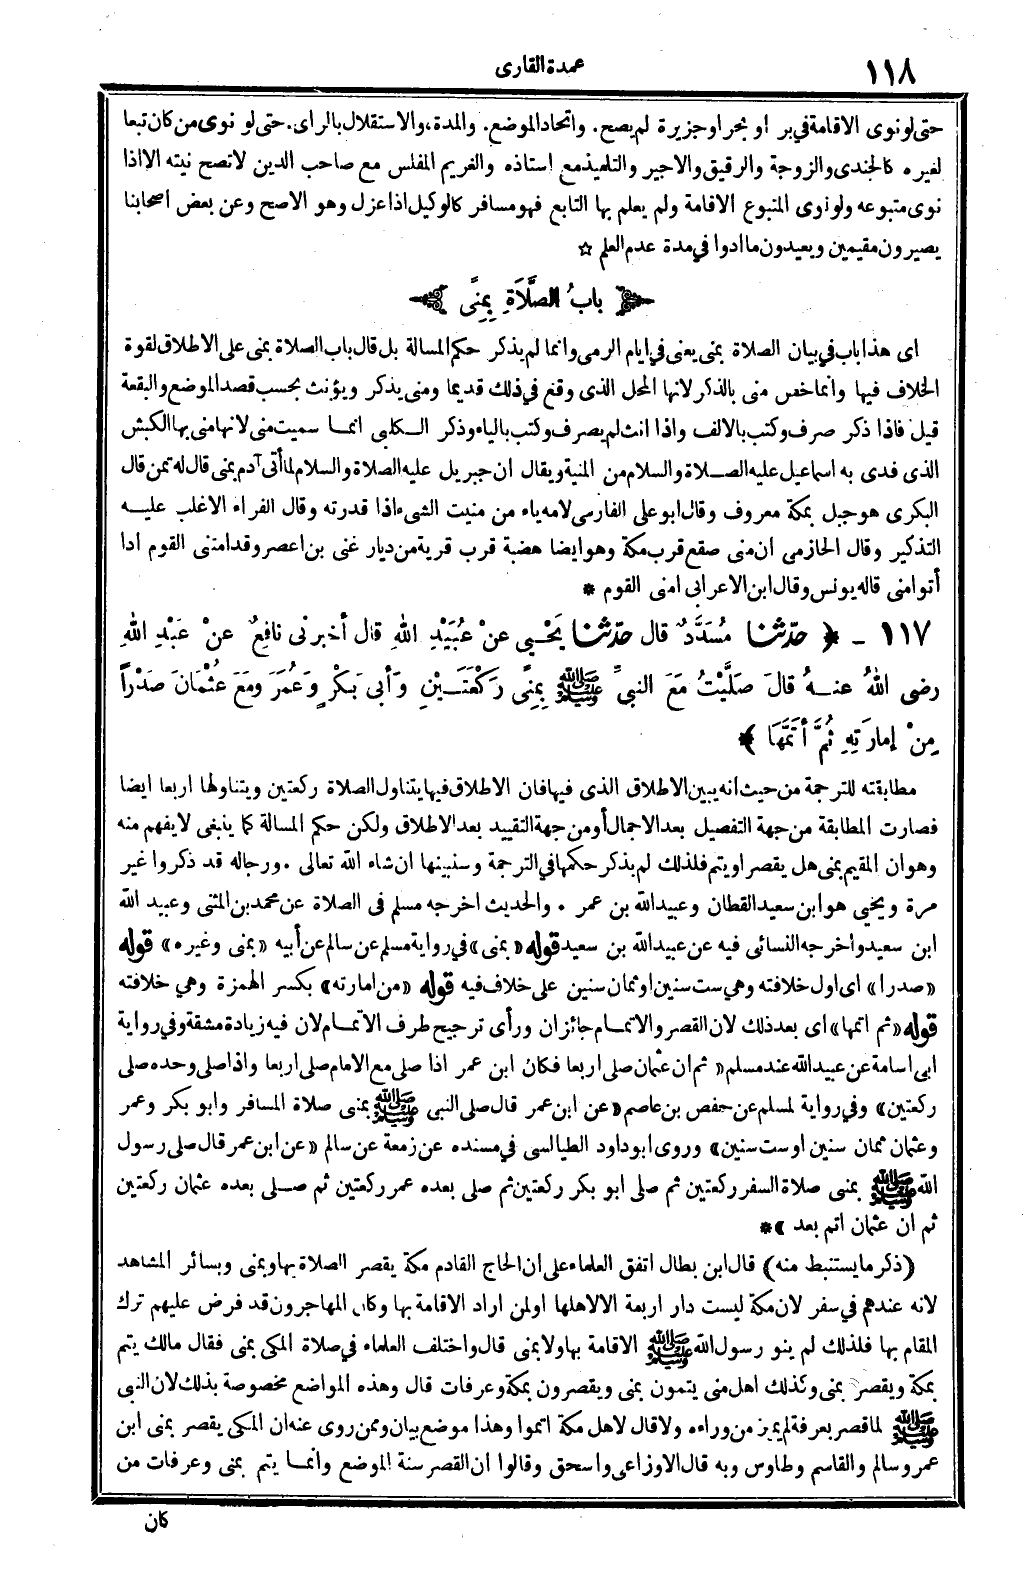 ١١٨
عمدة القارى
حتى لو نوى الاقامة فى بر او بحر او جزيرة لم يصح. واتحاد الموضع. والمدة، والاستقلال بالراى. حتى لو نوى من كان تبعا
لغيره كالجندى والزوجة والرقيق والاجير والتلميذ مع استاذه والغريم المفلس مع صاحب الدين لا تصح نيته الا اذا
نوى متبوعه ولو نوى المتبوع الاقامة ولم يعلم بها التابع فهو مسافر كالوكيل اذا عزل وهو الاصح وعن بعض اصحابنا
يصيرون مقيمين ويعيدون ما ادوا فى مدة عدم العلم ☆
﴿ بابُ الصَّلَاةِ بِمِنًى ﴾
اى هذا باب فى بيان الصلاة بمنى يعنى فى ايام الرمى وانما لم يذكر حكم المسالة بل قال باب الصلاة بمنى على الاطلاق لقوة
الخلاف فيها وانما خص منى بالذكر لانها المحل الذى وقع فى ذلك قديما ومنى يذكر ويؤنث بحسب قصد الموضع والبقعة
قيل فاذا ذكر صرف وكتب بالالف واذا انث لم يصرف وكتب بالياء وذكر الكلبى انما سميت منى لانها منى بها الكبش
الذى فدى به اسماعيل عليه الصلاة والسلام من المنية ويقال ان جبريل عليه الصلاة والسلام لما أتى آدم بمنى قال له تمن قال
البكرى هو جبل بمكة معروف وقال ابو على الفارسى لامه ياء من منيت الشىء اذا قدرته وقال الفراء الاغلب عليه
التذكير وقال الحازمى ان منى صقع قرب مكة وهو ايضا هضبة قرب قرية من ديار غنى بن اعصر وقد امتنى القوم اذا
أتوا منى قاله يونس وقال ابن الاعرابى امنى القوم *
١١٧ ـ ﴿ حدّثنا مُسَدَّدٌ قال حدّثنا يَحْيى عنْ عُبَيْدِ اللهِ قال أخبرنى نافِعٌ عنْ عَبْدِ اللهِ
رضى اللهُ عنهُ قالَ صَلَّيْتُ مَعَ النبىِّ ﷺ بِمِنًى رَكْعَتَيْنِ وَأبى بَكْرٍ وَعُمَرَ ومَعَ عثْمَانَ صَدْراً
مِنْ إمارَتِهِ ثُمَّ أتَمَّهَا ﴾*
مطابقته للترجمة من حيث انه يبين الاطلاق الذى فيها فان الاطلاق فيها يتناول الصلاة ركعتين ويتناولها اربعا ايضا
فصارت المطابقة من جهة التفصيل بعد الاجمال أو من جهة التقييد بعد الاطلاق ولكن حكم المسالة كما ينبغى لا يفهم منه
وهو ان المقيم بمنى هل يقصر او يتم فلذلك لم يذكر حكمها فى الترجمة وسنبينها ان شاء الله تعالى . ورجاله قد ذكروا غير
مرة ويحيى هو ابن سعيد القطان وعبيد الله بن عمر . والحديث اخرجه مسلم فى الصلاة عن محمد بن المثنى وعبيد الله
ابن سعيد واخرجه النسائى فيه عن عبيد الله بن سعيد قوله «بمنى» فى رواية مسلم عن سالم عن أبيه «بمنى وغيره» قوله
«صدرا» اى اول خلافته وهى ست سنين او ثمان سنين على خلاف فيه قوله «من امارته» بكسر الهمزة وهى خلافته
قوله «ثم اتمها» اى بعد ذلك لان القصر والاتمام جائزان ورأى ترجيح طرف الاتمام لان فيه زيادة مشقة وفى رواية
ابى أسامة عن عبيد الله عند مسلم «ثم ان عثمان صلى اربعا فكان ابن عمر اذا صلى مع الامام صلى اربعا واذا صلى وحده صلى
ركعتين» وفى رواية لمسلم عن حفص بن عاصم «عن ابن عمر قال صلى النبى ﷺ بمنى صلاة المسافر وابو بكر وعمر
وعثمان ثمان سنين او ست سنين» وروى ابو داود الطيالسى فى مسنده عن زمعة عن سالم «عن ابن عمر قال صلى رسول
الله ﷺ بمنى صلاة السفر ركعتين ثم صلى ابو بكر ركعتين ثم صلى بعده عمر ركعتين ثم صلى بعده عثمان ركعتين
ثم ان عثمان اتم بعد »*
(ذكر ما يستنبط منه) قال ابن بطال اتفق العلماء على ان الحاج القادم مكة يقصر الصلاة بها وبمنى وبسائر المشاهد
لانه عندهم فى سفر لان مكة ليست دار اربعة الا لاهلها او لمن اراد الاقامة بها وكان المهاجرون قد فرض عليهم ترك
المقام بها فلذلك لم ينو رسول الله ﷺ الاقامة بها ولا بمنى قال واختلف العلماء فى صلاة المكى بمنى فقال مالك يتم
بمكة ويقصر بمنى وكذلك اهل منى يتمون بمنى ويقصرون بمكة وعرفات قال وهذه المواضع مخصوصة بذلك لان النبى
ﷺ لما قصر بعرفة لم يميز من وراءه ولا قال لاهل مكة اتموا وهذا موضع بيان وممن روى عنه ان المكى يقصر بمنى ابن
عمر وسالم والقاسم وطاوس وبه قال الاوزاعى واسحق وقالوا ان القصر سنة الموضع وانما يتم بمنى وعرفات من
كان